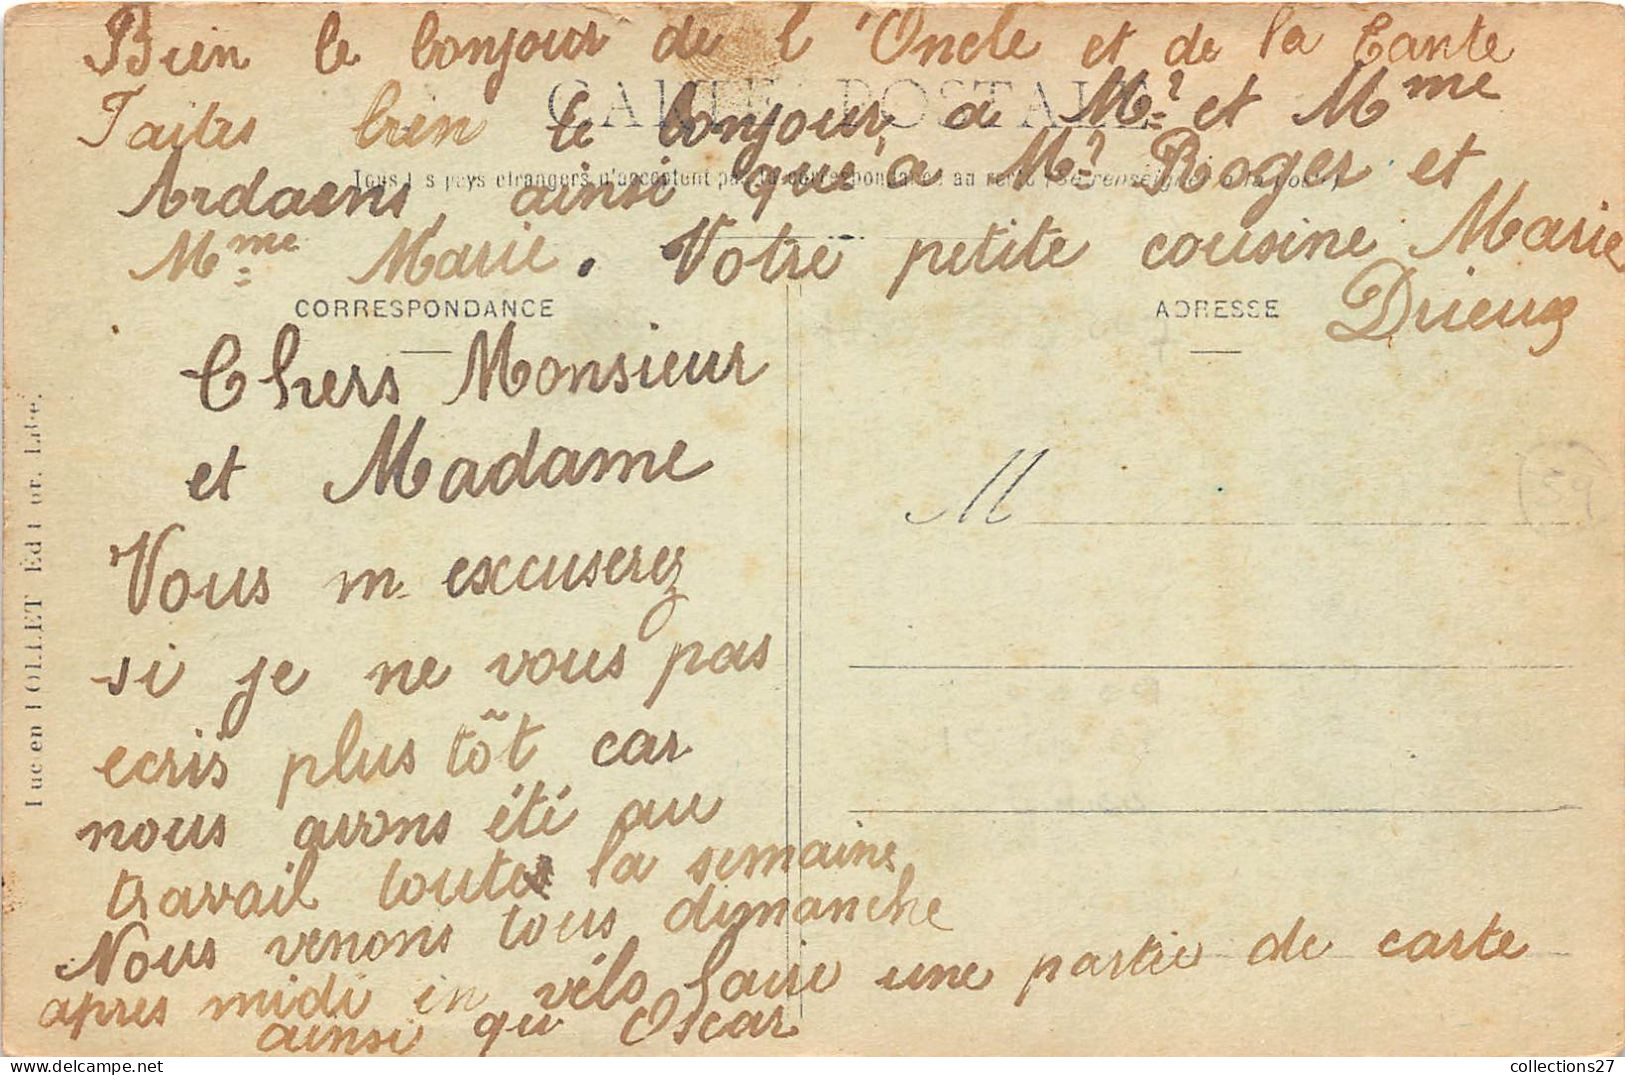 Bien le bonjour de l'Oncle et de la Tante
CARTE POSTALE
Faites bien le bonjour, a Mr. et Mme
Tous les pays étrangers n'acceptent pas la correspondance au recto (Se renseigner à la poste)
Ardaens, ainsi qu'a Mr. Roger et
Mme Marie. Votre petite cousine Marie
Drieux
CORRESPONDANCE
ADRESSE
Chers Monsieur
et Madame
Vous m excuserez
si je ne vous pas
ecris plus tõt car
nous avons été au
travail toute la semaine
Nous venons tous dimanche
apres midi en vélo faire une partie de carte
ainsi qu Oscar
M
59
Lucien POLLET Editeur. Lille.
collections27